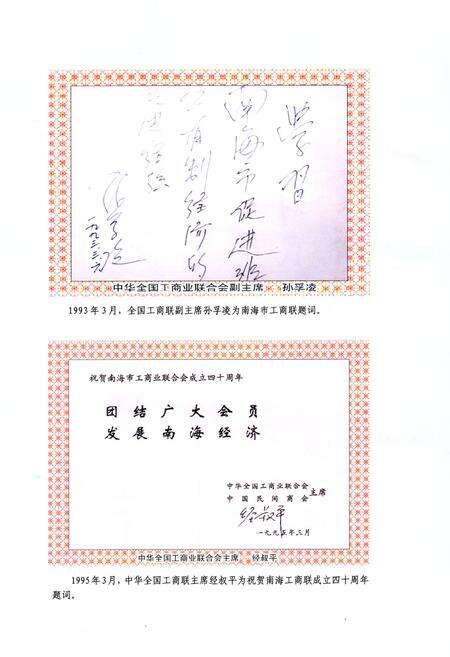 学习
南海市促进非
公有制经济的
孙孚凌
一九九三.三.六
中华全国工商业联合会副主席 孙孚凌
1993年3月,全国工商联副主席孙孚凌为南海市工商联题词。
祝贺南海市工商业联合会成立四十周年
团结广大会员
发展南海经济
中华全国工商业联合会
中国民间商会
主席
经叔平
一九九五年三月
中华全国工商业联合会主席 经叔平
1995年3月,中华全国工商联主席经叔平为祝贺南海工商联成立四十周年
题词。